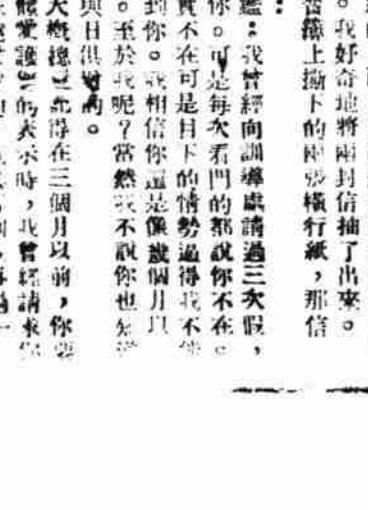 。我好奇地將兩封信抽了出來。
簿上撕下的兩張橫行紙，那信
：
鑑：我曾經向訓導處請過三次假，
你。可是每次看門的都說你不在。
實不在可是目下的情勢逼得我不能
到你。我相信你還是像幾個月以
。至於我呢？當然我不說你也知道
與日俱增的。
大概總記得在三個月以前，你要
愛護的表示時，我曾經請求你